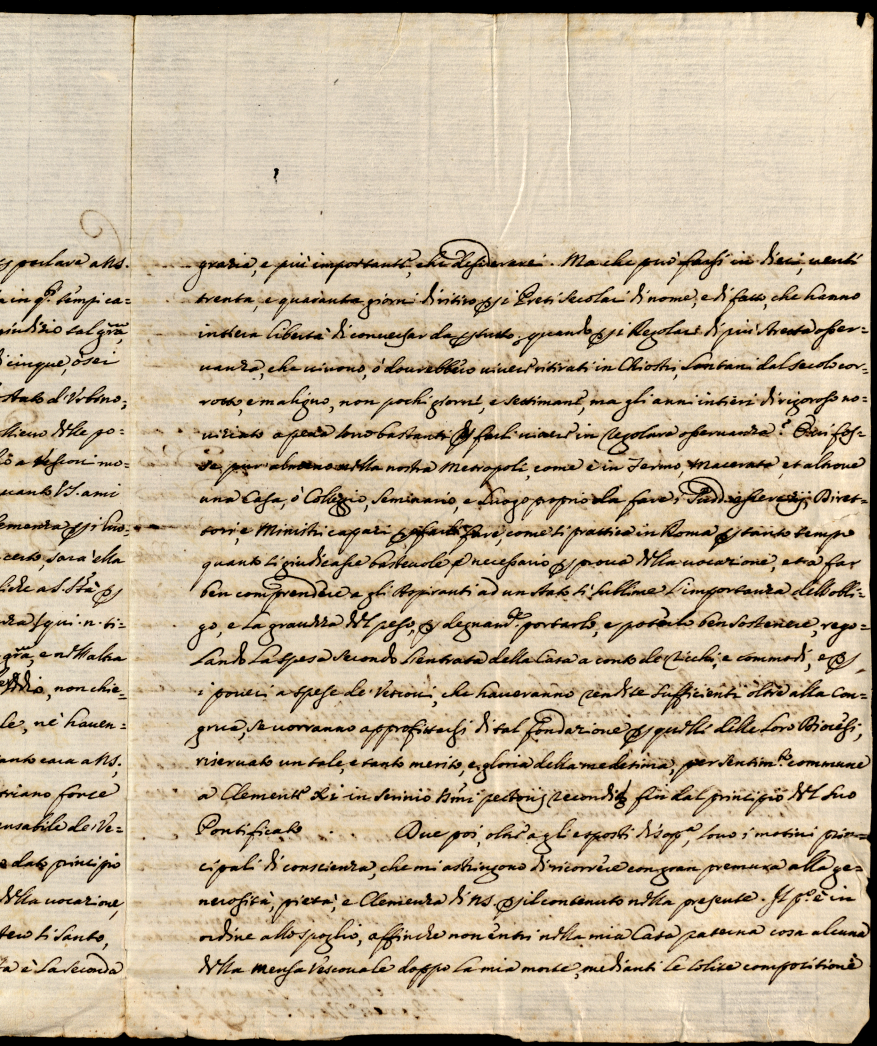 parlare a NS.
in q.ti tempi ca=
giudizio tal gra,
cinque, ò sei
stato d'Urbino,
delle po=
Vescovi mo=
quanto V.S. ami
clemenza
certo, sarà ella
a S. Stà
qui n. ti=
gra, e nell'altra
non chie=
le, nè haven=
tanto cara a NS.
forse
de Ve=
dato principio
della vocazione,
santo,
è la seconda
grazie, e più importanti, che desiderarei. Ma che può farsi in dieci, venti
trenta, e quaranta giorni di ritiro per i Preti secolari di nome, e di fatto, che hanno
intiera libertà di conversar da per tutto; quando per i Regolari di più stretta osser=
vanza, che vivono, ò dovrebbero vivere ritirati in Chiostri, lontani dal secolo cor=
rotto, e maligno, non pochi giorni, e settimane, ma gli anni intieri di rigoroso no=
viziato a pena sono bastanti per farli vivere in regolare osservanza? Qui fos=
se pur almeno nella nostra Metropoli, come è in Fermo, Macerata, et altrove
una Casa, ò Collegio, Seminario, e Luogo proprio da fare i Diret=
tori, e Ministri capaci fare, come si prattica in Roma per tanto tempo
quanto si giudicasse bastevole e necessario per prova della vocazione, et a far
ben comprendere a gli Aspiranti ad un stato sì sublime l'importanza dell'obli=
go, e la grandezza del peso, per degnam.te portarlo, e poterlo ben sostenere, rego=
lando la spesa secondo l'entrate della Casa a conto de ricchi, e commodi, e per
i poveri a spese de Vescovi, che haveranno rendite sufficienti oltre alla con=
grua, se vorranno approfittarsi di tal fondazione per quelli delle loro Diocesi,
riservato un tale, e tanto merito, e gloria della medesima, per sentim.to commune
a Clemente XI in scrinio s.mi pectoris recondito fin dal principio del suo
Pontificato. Due poi, oltre a gli esposti di sop.a, sono i motivi prin=
cipali di conscienza, che mi astringono di ricorrere con gran premura alla ge=
nerosità, pietà, e Clemenza di NS. per il contenuto nella presente. Il p.o è in
ordine allo spoglio, affinche non entri nella mia Casa paterna cosa alcuna
della mensa Vescovale doppo la mia morte, mediante le solite compositione